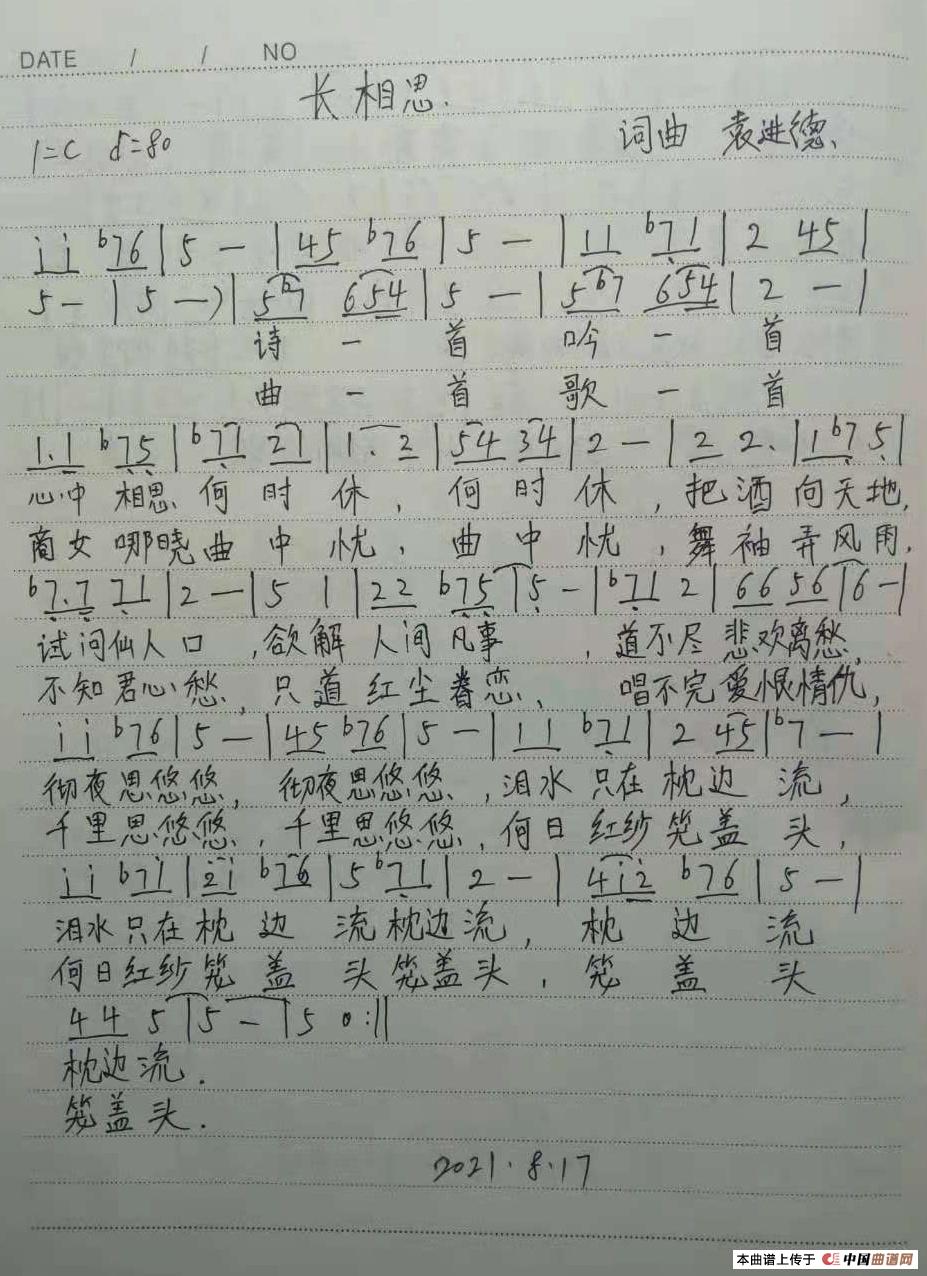 DATE / / NO
长相思.
1=C ♩=80 词曲 袁进德、
i i b76 | 5 — | 45 b76 | 5 — | 11 b71 | 2 45 |
5 — | 5 —) | 5b7 654 | 5 — | 5b7 654 | 2 — |
诗 一 首 吟 一 首
曲 一 首 歌 一 首
1.1 b75 | b77 21 | 1. 2 | 54 34 | 2 — | 2 2. | 1b7 5 |
心中 相思 何 时 休 , 何 时 休 , 把 酒 向 天 地,
商女 哪晓 曲 中 忧 , 曲 中 忧 , 舞 袖 弄 风 雨.
b7.7 71 | 2 — | 5 1 | 22 b75 | 5 — | b71 2 | 66 56 | 6 — |
试问仙人 口 ,欲解 人间 凡事 , 道不尽 悲欢离愁,
不知君心 愁, 只道 红尘 眷恋、 唱不完 爱恨情仇,
i i b76 | 5 — | 45 b76 | 5 — | 11 b71 | 2 45 | b7 — |
彻夜 思悠悠, 彻夜思悠悠 ,泪水 只在 枕 边 流 ,
千里 思悠悠 ,千里 思悠悠, 何日 红纱 笼 盖 头 ,
i i b7i | 2i b76 | 5 b71 | 2 — | 4i2 b76 | 5 — |
泪水 只在 枕 边 流 枕边流 , 枕 边 流
何日红纱 笼 盖 头 笼盖头 , 笼 盖 头
4 4 5 | 5 — | 5 0 :||
枕边流 .
笼盖头 .
2021.8.17
本曲谱上传于 中国曲谱网